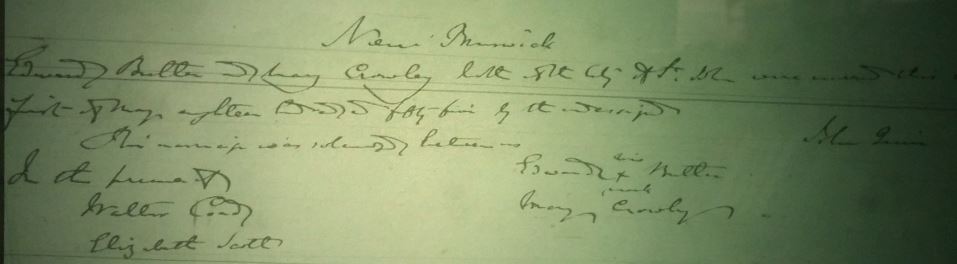 New Brunswick
Edward Butler & Mary Crowley both of the City of St. John were married this
first of May eighteen hundred & fifty five by the undersigned
John Quin
This marriage was solemnized between us
In the presence of
Edward his x mark Butler
Walter
Mary Crowley
Elizabeth Scott